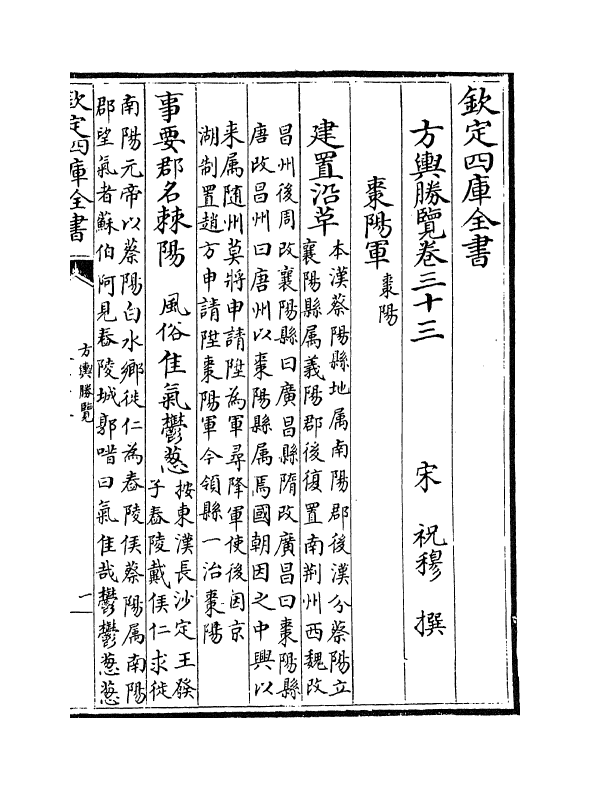 欽定四庫全書
方輿勝覽卷三十三
宋　祝穆　撰
棗陽軍
棗陽
建置沿革
本漢蔡陽縣地属南陽郡後漢分蔡陽立
襄陽縣属義陽郡後復置南荆州西魏改
昌州後周改襄陽縣曰廣昌縣隋改廣昌曰棗陽縣
唐改昌州曰唐州以棗陽縣属焉國朝因之中興以
来属随州莫將申請陞為軍尋降軍使後因京
湖制置趙方申請陞棗陽軍今領縣一治棗陽
事要郡名棘陽　風俗佳氣鬱葱
按東漢長沙定王發
子舂陵戴侯仁求徙
南陽元帝以蔡陽白水鄉徙仁為舂陵侯蔡陽属南陽
郡望氣者蘇伯阿見舂陵城郭唶曰氣佳哉鬱鬱葱葱
欽定四庫全書
方輿勝覽
一